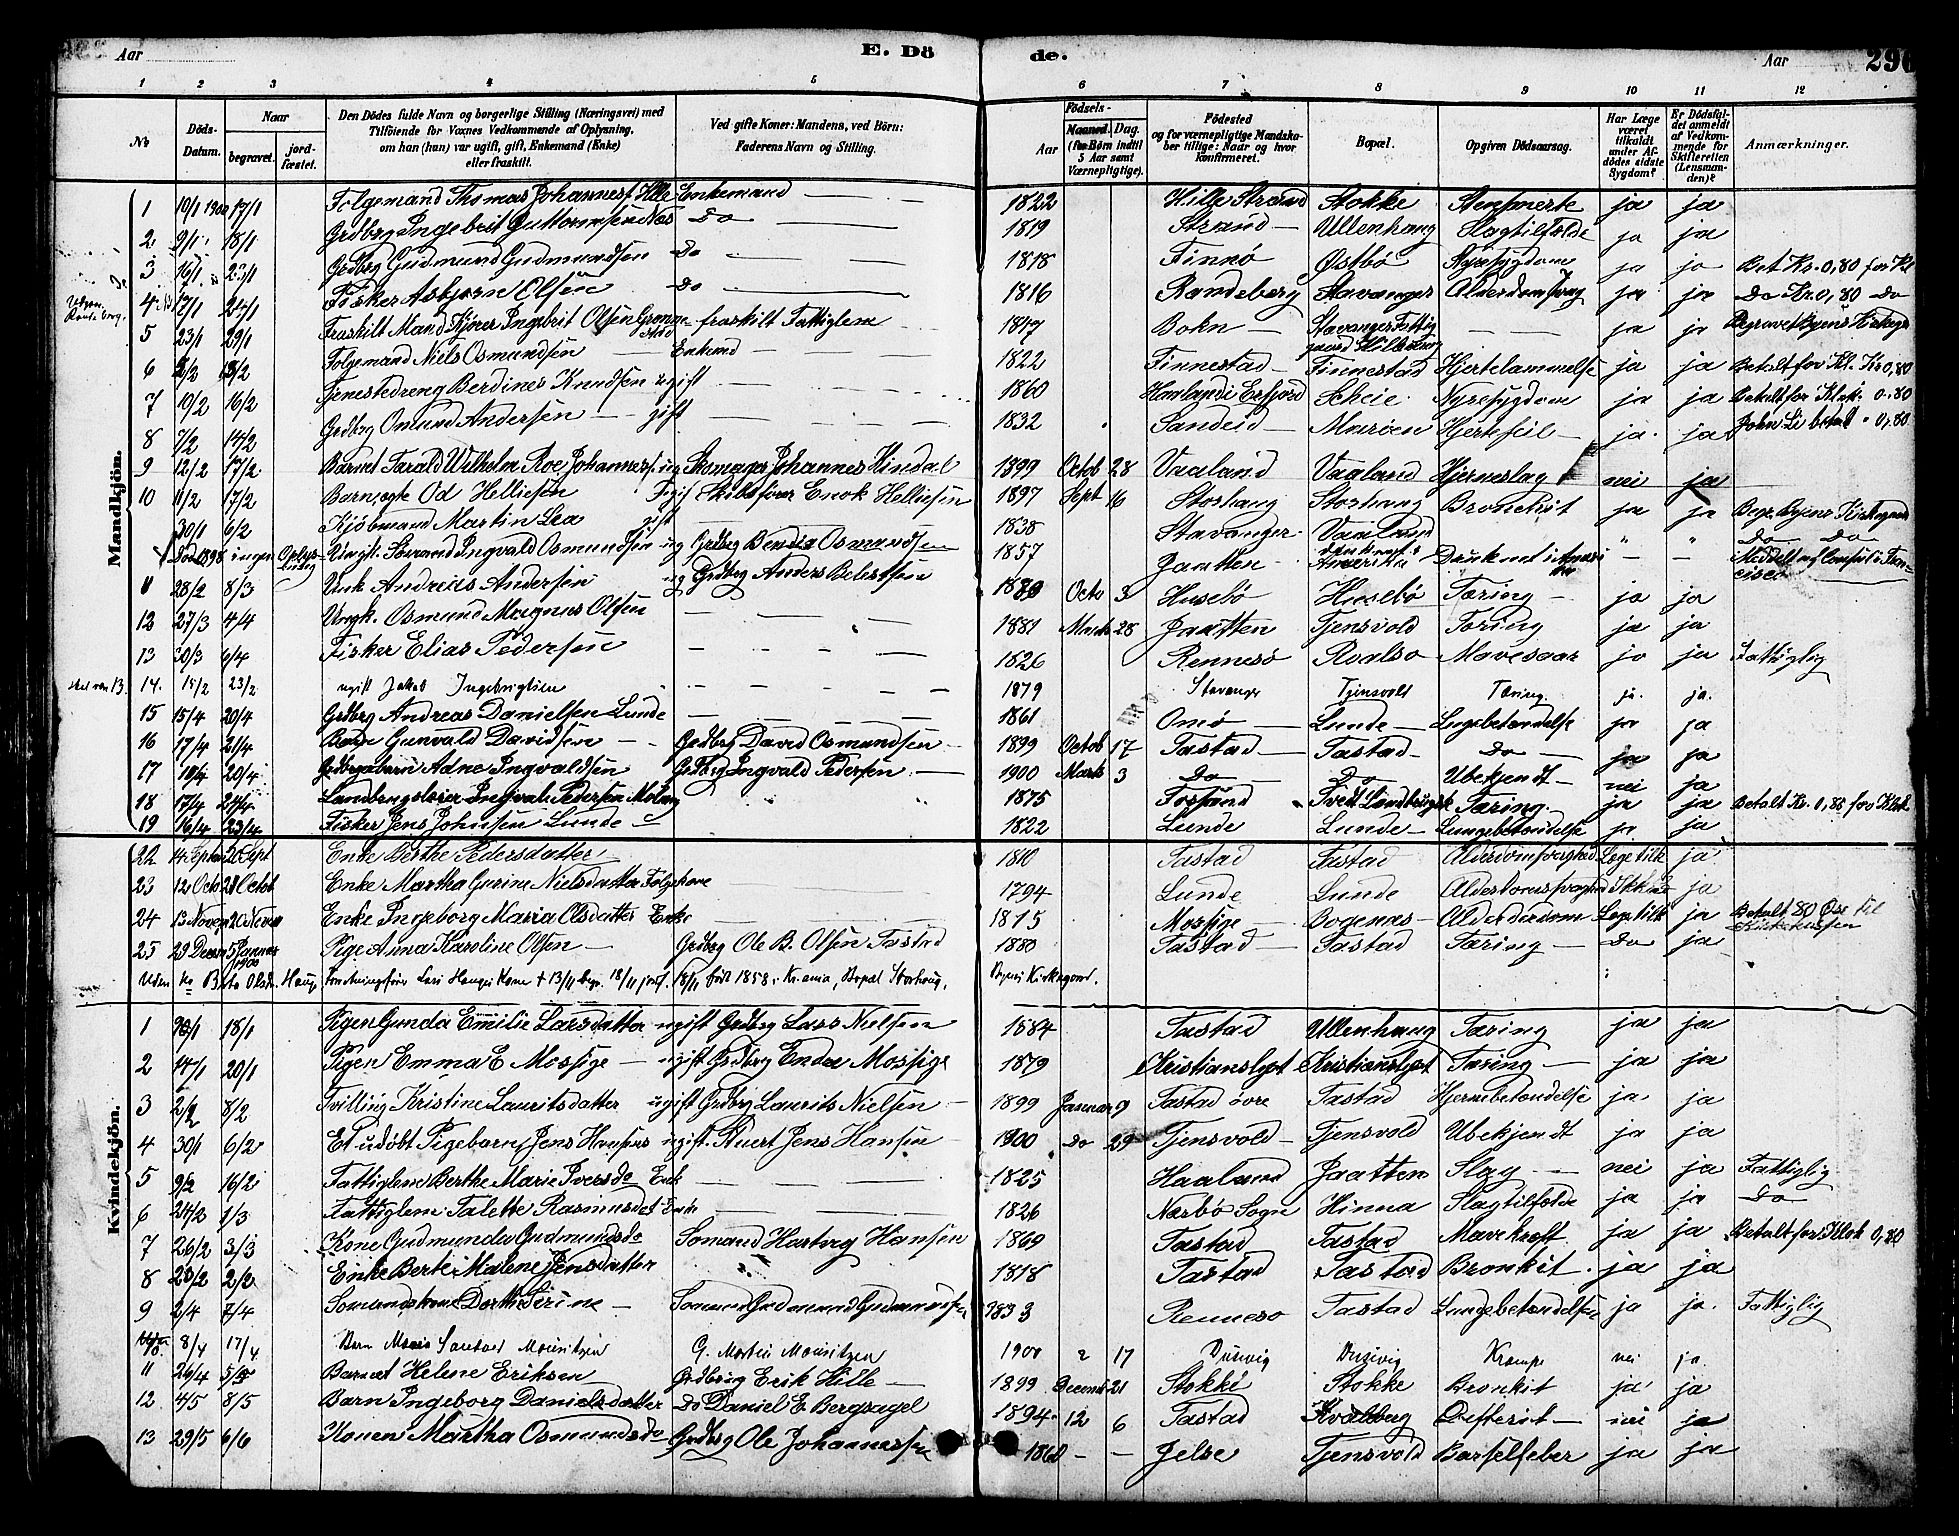 Aar E. Dö de. Aar 290
1 2 3 4 5 6 7 8 9 10 11 12
No Döds-Datum. Naar begravet. jordfæstet. Den Dödes fulde Navn og borgerlige Stilling (Næringsvei) med Tilföiende for Voxnes Vedkommende af Oplysning, om han (hun) var ugift, gift, Enkemand (Enke) eller fraskilt. Ved gifte Koner: Mandens, ved Börn: Faderens Navn og Stilling. Födsels- Aar Maaned. Dag. (for Börn indtil 5 Aar samt Værnepligtige). Födested og for værnepligtige Mandskaber tillige: Naar og hvor konfirmeret. Bopæl. Opgiven Dödsaarsag. Har Læge været tilkaldt under Afdödes sidste Sygdom? Er Dödsfaldet anmeldt af Vedkommende for Skifteretten (Lensmanden)? Anmærkninger.
Mandkjön.
1 10/1 1900 17/1 Folgemand Thomas Johannesf. Hille Enkemand 1822 Hille Strand Stokke ja ja
2 9/1 18/1 Grdbrg Ingebret Guttormsen Næs Do 1819 Strand Ullenhaug Slagtilfælde ja ja
3 16/1 23/1 Grdbrg Gudmund Gudmundsen Do 1818 Finnø Østbø Nyresygdom ja ja Bet Kr. 0,80 for Kl
4 17/1 Fisker Asbjørn Olsen Do 1816 Randeberg Stavanger Alderdomsvag ja ja Do Kr. 0,80 Do
5 23/1 29/1 Fraskilt Mand Kjører Ingebrit Olsen fraskilt Fattiglem 1847 Bokn Stavanger Fattiggaard ja ja Begravet Byens Kirkeg
6 13/2 Folgemand Niels Osmundsen Enkemd 1822 Finnestad Finnestad Hjertelammelse ja ja Betalt for Kl. Kr 0,80
7 10/2 16/2 Tjenestedreng Berdines Knudsen ugift 1860 Haalandi Erfjord Scheie Nyresygdom ja ja Betalt for Klok. 0.80
8 7/2 14/2 Grdbrg Omund Andersen gift 1832 Sandeid Mariøen Hjertefeil ja ja John Li betalt 0,80
9 12/2 17/2 Barnet Tarald Wilhelm Roe Johannesf. ug Skomager Johannes Kindal 1899 Octob 28 Vaaland Vaaland Hjerneslag nei ja
10 11/2 17/2 Barn, ægte Od Helliesen Skibsfører Enok Helliesen 1897 Sept 16 Storhaug Storhaug Bronckit ja ja Begr. Byens Kirkegaard
30/1 6/2 Kjøbmand Martin Lea gift 1838 Stavanger Vaaland " " Do Do
Død 1898 ingen Oplysning Yngl. Sømand Ingvald Osmundsen ug Grdbrg Bendix Osmundsen 1857 Jaatten Amerika Druknet i Meddelt af Consul i
11 28/2 8/3 Unk Andreas Andersen ug Grdbrg Anders Belestsen 1880 Octo 3 Husebø Husebø Tæring ja ja
12 27/3 4/4 Ungk. Osmund Magnus Olsen 1881 Marts 28 Jaatten Tjensvold Tæring ja ja
13 30/3 6/4 Fisker Elias Pedersen 1826 Rennesø Roalsø Mavesaar ja ja Fattiglig
14. 15/2 23/2 ugift Jakob Ingebrigtsen 1879 Stavanger Tjensvold Tæring. ja. ja.
15 15/4 20/4 Grdbrg Andreas Danielsen Lunde 1861 Omø Lunde Lugebetændelse ja ja
16 17/4 21/4 Barn Gunvald Davidsen Grdbrg David Osmundsen 1899 Octob 17 Tastad Tastad Do ja ja
17 19/4 20/4 Grdbrgsbarn Adne Ingvaldsen Grdbrg Ingvald Pedersen 1900 Marts 3 Do Do Ubekjendt nei ja
18 17/4 24/4 Landbrugslærer Ingvald Pedersen 1875 Fossand Tvedt Landbrugsk Tæring ja ja Betalt Kr. 0,85 for Klok
19 16/4 23/4 Fisker Jens Johnsen Lunde 1822 Lunde Lunde Lungebetændelse ja ja
22 14 Septem 20 Sept Enke Berthe Pedersdatter 1810 Tastad Tastad Alderdomsvaghed Lege tilk ja
23 12 Octo 21 Octob Enke Martha Gurine Nielsdatter Folgekone 1794 Lunde Lunde Alderdomsvaghed Ikke ja
24 13 Novem 20 Novem Enke Ingeborg Maria Olsdatter Enke 1815 Mossige Bogenæs Lege tilk ja Betalt 80 Øre til Kirkekassen
25 29 Decem 5 Januar 1900 Pige Anna Karoline Olsen Grdbrg Ole B. Olsen Tastad 1880 Tastad Tastad Tæring Do ja
Uden No Olsdr. Hauge Forretningsfører Lars Hauges Kone + 13/11 begr. 18/11 jordf. 18/11 født 1858 i Kr.ania, Bopæl Storhaug, Byens Kirkegaard.
Kvindekjön.
1 18/1 Pigen Gunda Emilie Larsdatter ugift Grdbrg Lars Nielsen 1884 Tastad Ullenhaug Tæring ja ja
2 14/1 20/1 Pigen Emma E Mossige ugift Grdbrg Endre Mossige 1879 Kristianslyst Kristianslyst Tæring ja ja
3 2/2 8/2 Tvilling Kristine Lauritsdatter ugift Grdbrg Laurits Nielsen 1899 Januar 9 Tastad övre Tastad Hjernebetændelse ja ja
4 30/1 6/2 Et udøbt Pigebarn, Jens Hansens ugift. Jens Hansen 1900 Do 29 Tjensvold Tjensvold Ubekjendt ja ja
5 9/2 16/2 Fattiglem Berthe Marie Iversda Enke 1825 Haaland Jaatten Slag nei ja Fattiglig
6 24/2 1/3 Fattiglem Talette Rasmusdat Enke 1826 Nærbø Sogn Hinna Slagtilfælde ja ja Do
7 26/2 3/3 Kone Gudmunda Gudmundsda Sømand Hartvig Hansen 1869 Tastad Tastad Mavekræft ja ja Betalt for Klok 0,80
8 2/2 Enke Berte Malene Jensdatter 1818 Tastad Tastad Bronkit. ja ja
9 2/4 7/4 Sømandskone Dorthe Serine Sømand Gudmund Gudmundsen 1833 Rennesø Tastad Lungebetændelse ja ja. Fattiglig
8/4 17/4 Barn Mouritzen G. Martin Mouritzen 1900 2 17 Dusevig Dusevig Krampe nei ja.
11 26/4 5/5 Barnet Helene Eriksen Grdbrug Erik Hille 1899 Decemb 21 Stokke Stokke Bronkit ja ja
12 4/5 8/5 Barn Ingeborg Danielsdatter Do Daniel E Bergsagel 1894 12 6 Tastad Kvalberg Difterit nei ja
13 29/5 6/6 Konen Martha Osmundsda Grdbrg Ole Johannessen 1860 Jelse Tjensvold Barselfeber ja ja